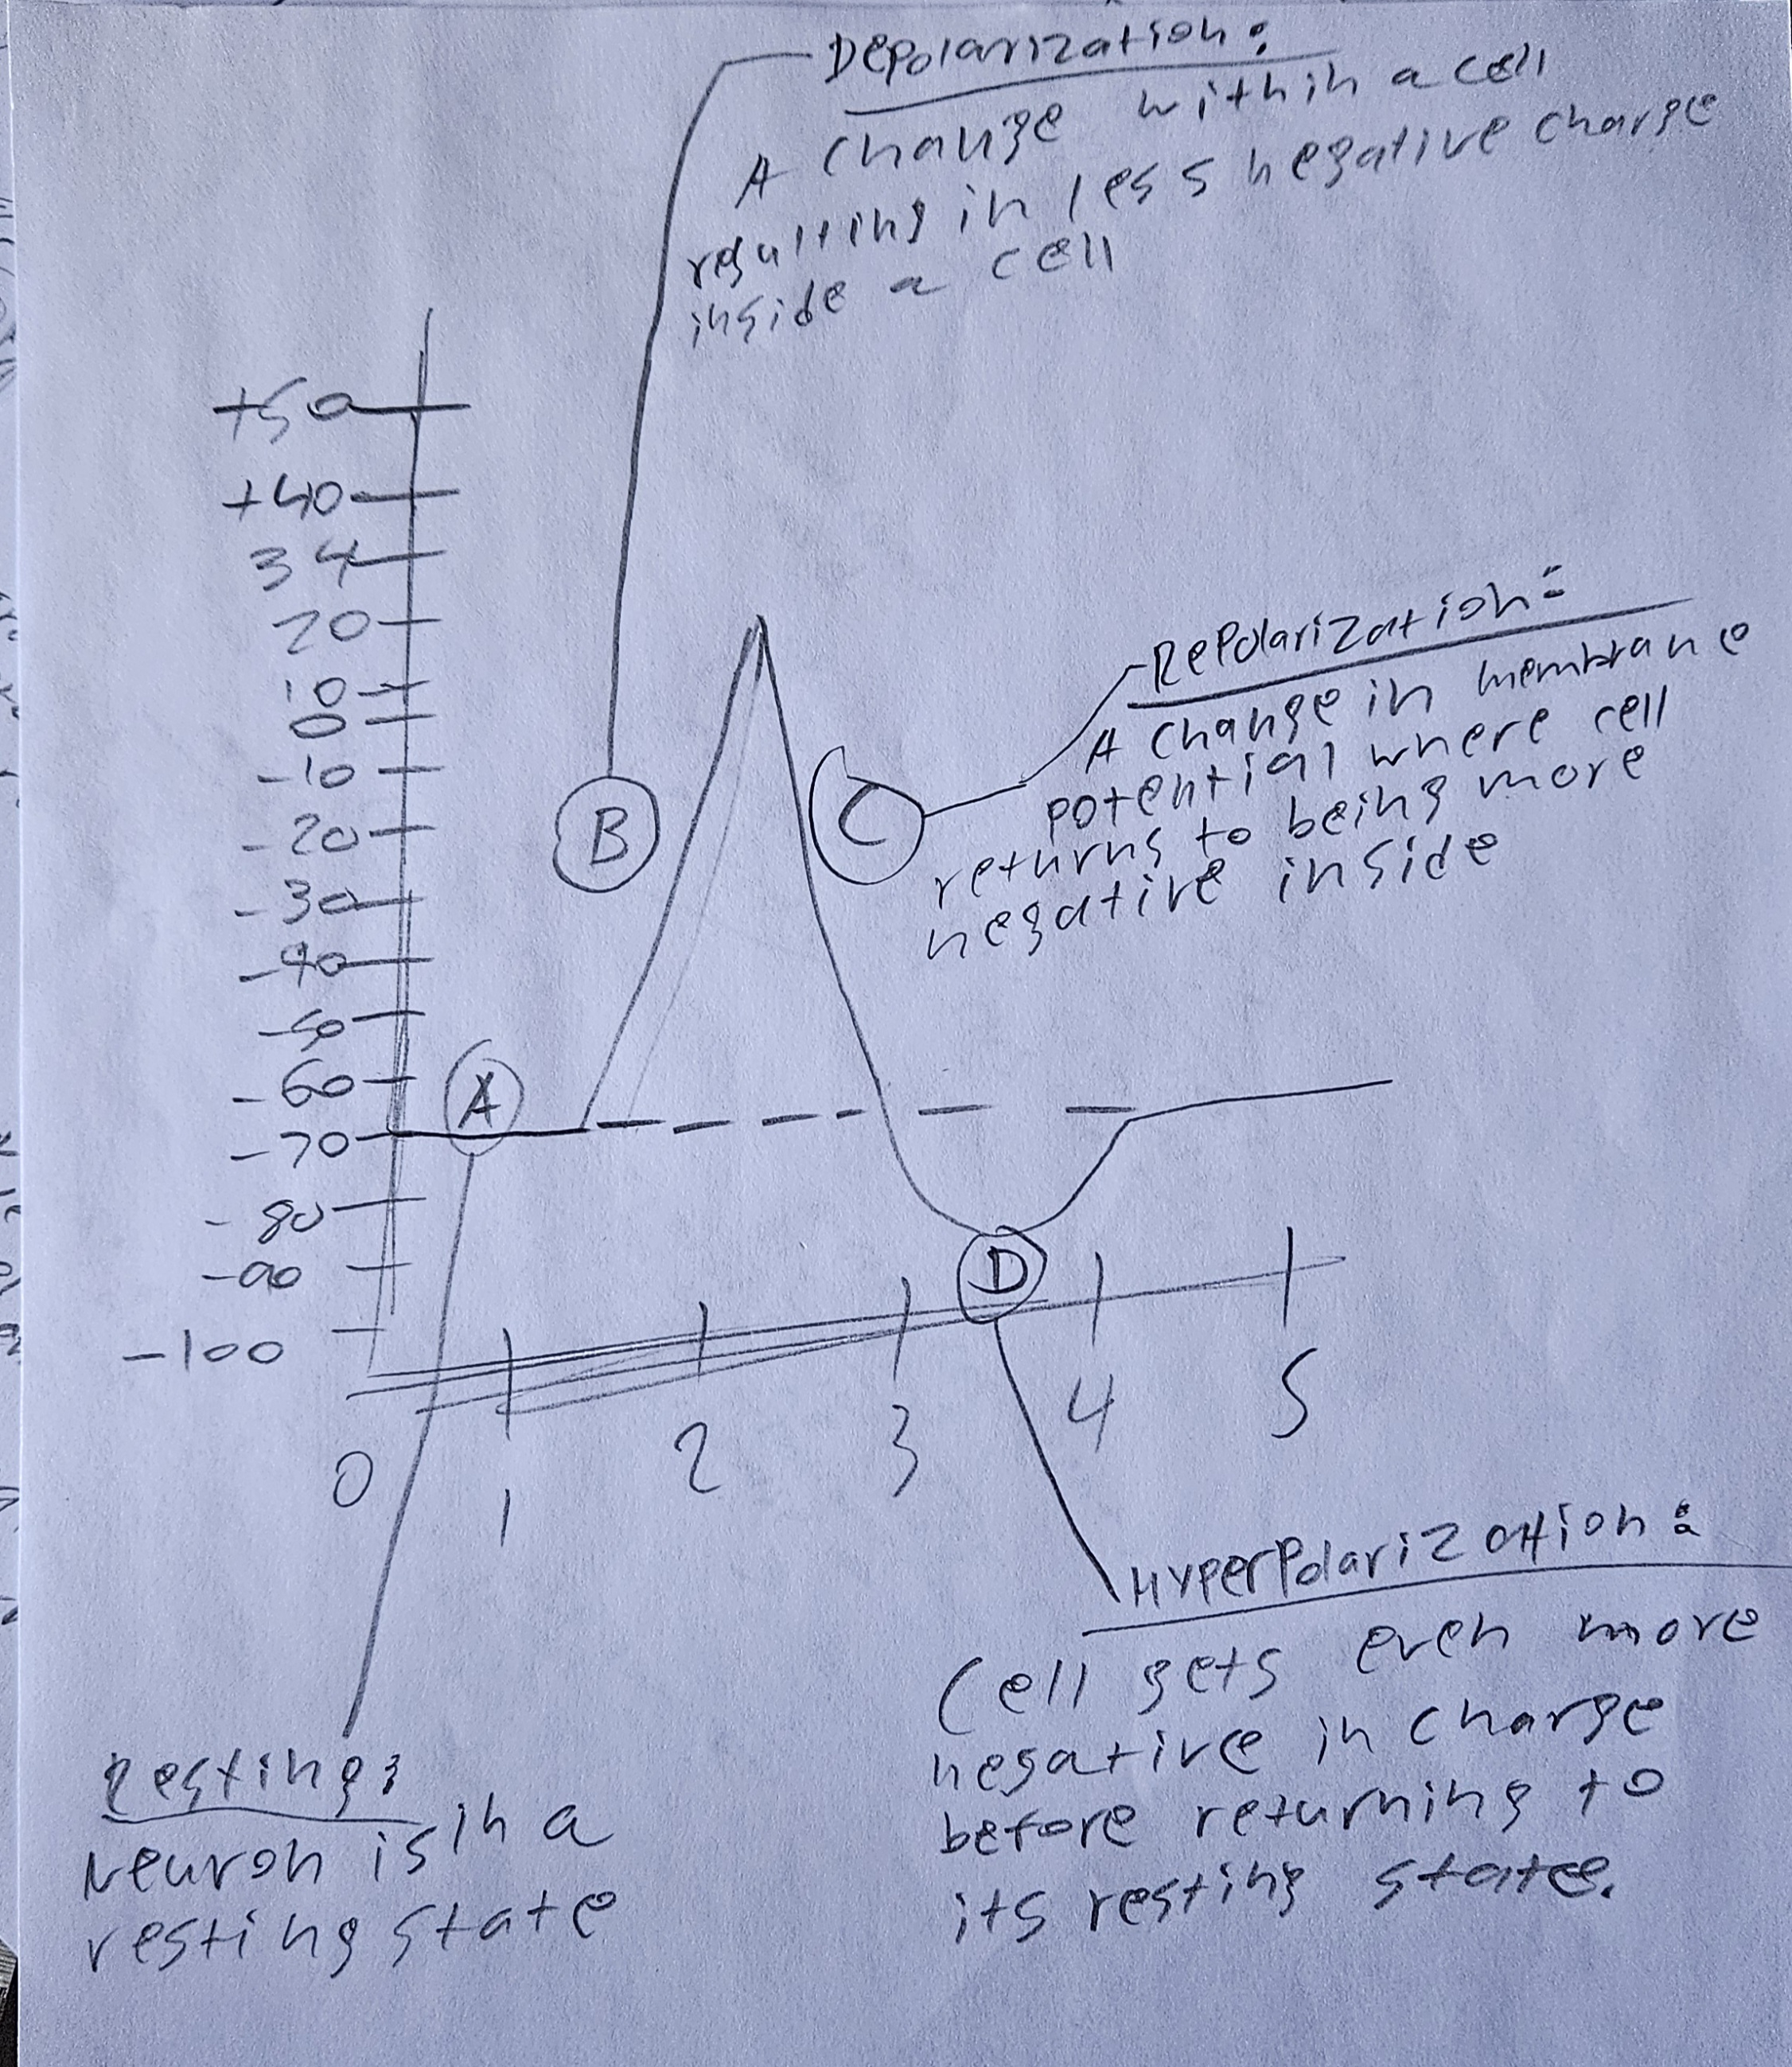 Depolarization:
A change within a cell
resulting in less negative charge
inside a cell
+50
+40
34
20
10
0
-10
-20
-30
-40
-50
-60
-70
-80
-90
-100
B
Repolarization:
A change in membrane
potential where cell
returns to being more
negative inside
C
A
D
0
1
2
3
4
5
Hyperpolarization:
Cell gets even more
negative in charge
before returning to
its resting state.
Resting:
Neuron is in a
resting state